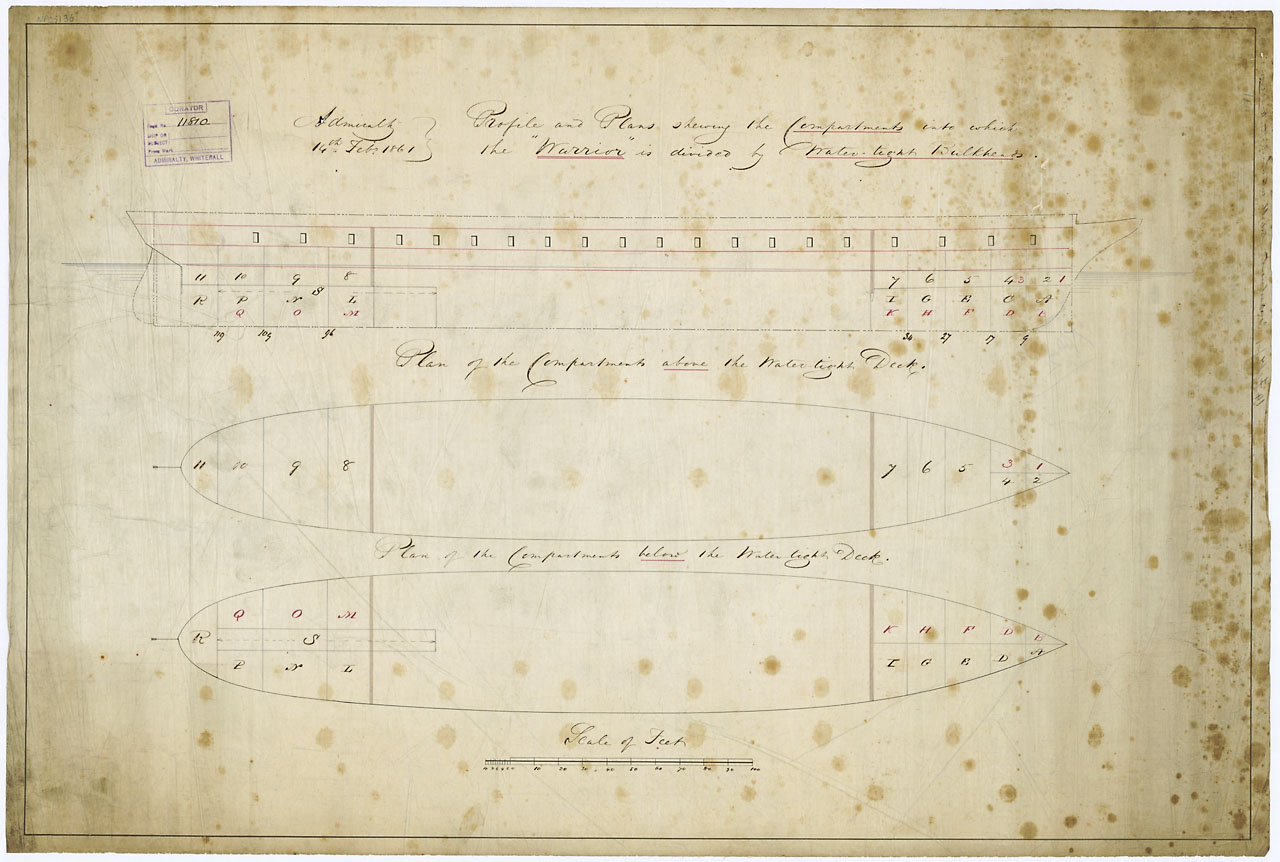 CURATOR
11810
ADMIRALTY, WHITEHALL
Admiralty
14th Feb. 1861
Profile and Plans shewing the Compartments into which
the "Warrior" is divided by Water-tight Bulkheads.
11 10 9 8 7 6 5 4 3 2 1
R P N S L I G E C A
Q O M K H F D B
119 109 96 34 27 17 9
Plan of the Compartments above the Water-tight Deck.
11 10 9 8 7 6 5 3 1
4 2
Plan of the Compartments below the Water-tight Deck.
Q O M K H F D B
R S A
P N L I G E D
Scale of Feet
10 20 30 40 50 60 70 80 90 100